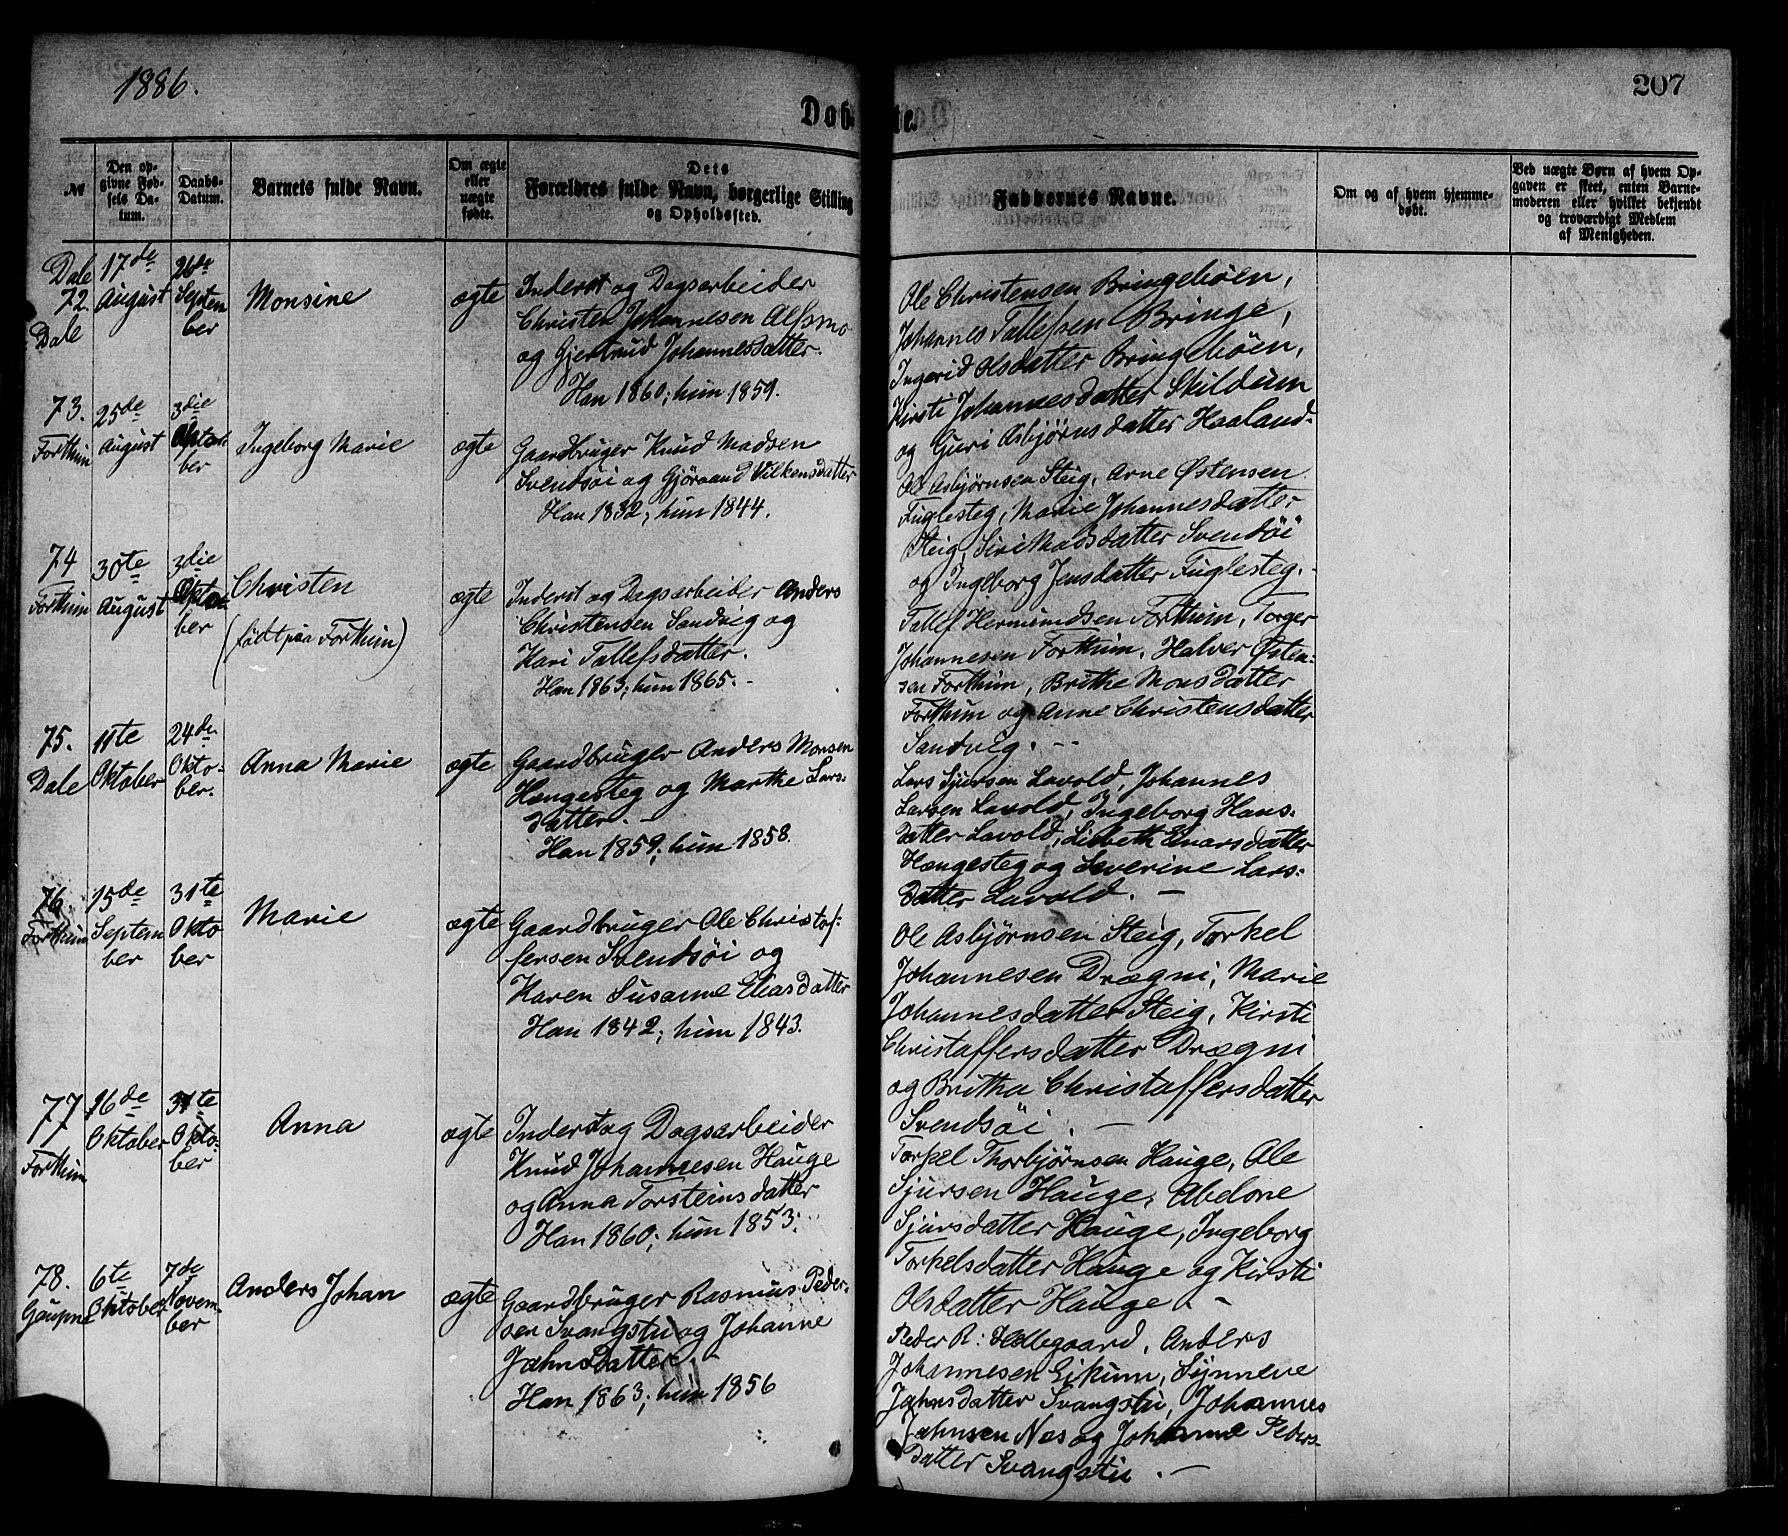 1886.
207
Dåb
te.
№
Den op-
givne Fød-
sels Da-
tum.
Daabs-
Datum.
Barnets fulde Navn.
Om ægte
eller
uægte
fødte.
Dets
Forældres fulde Navn, borgerlige Stilling
og Opholdssted.
Faddernes Navne.
Om og af hvem hjemme-
døbt.
Ved uægte Børn af hvem Op-
gaven er skeet, enten Barne-
moderen eller hvilket bekjendt
og troværdigt Medlem
af Menigheden.
Dale
72.
Dale
17de
August
26de
Septem
ber
Monsine
ægte
Inderst og Dagsarbeider
Christen Johannesen Alfsmo
og Gjertrud Johannesdatter.
Han 1860; hun 1859.
Ole Christensen Bringebøen,
Johannes Tallefsen Bringe,
Ingerid Olsdatter Bringebøen,
Kirsti Johannesdatter Skildum
og Guri Asbjørnsdatter Haaland.
73.
Forthun
25de
August
3die
Oktob
ber
Ingeborg Marie
ægte
Gaardbruger Knud Madsen
Svendsøi og Gjøraand Vilkensdatter
Han 1832; hun 1844.
Ole Asbjørnsen Steig, Arne Østensen
Fuglesteg, Marie Johannesdatter
Steig, Siri Madsdatter Svendsøi
og Ingeborg Jensdatter Fuglesteg.
74
Forthun
30te
August
3die
Oktob
ber
Christen
(født paa Forthun)
ægte
Inderst og Dagsarbeider Anders
Christensen Sandvig og
Kari Tallefsdatter.
Han 1863; hun 1865. -
Tallef Hermundsen Forthun, Torger
Johannesen Forthun, Halver Østen-
sen Forthun, Brithe Monsdatter
Forthun og Anne Christensdatter
Sandvig. -
75.
Dale
11te
Oktober
24de
Okto-
ber.
Anna Marie
ægte
Gaardbruger Anders Monsen
Hængesteg og Marthe Lars-
datter. -
Han 1859; hun 1858.
Lars Sjursen Lavold, Johannes
Larsen Lavold, Ingeborg Hans-
datter Lavold, Lisbeth Enarsdatter
Hængesteg og Severine Lars-
datter Lavold. -
76.
Forthun
15de
Septem
ber
31te
Okto
ber
Marie
ægte
Gaardbruger Ole Christof-
fersen Svendsøi og
Karen Susanne Eliasdatter
Han 1842; hun 1843.
Ole Asbjørnsen Steig, Torkel
Johannesen Drægni, Marie
Johannesdatter Steig, Kirsti
Christaffersdatter Drægni
og Britha Christaffersdatter
Svendsøi. -
77
Forthun
16de
Oktober
31te
Okto-
ber
Anna
ægte
Inderst og Dagsarbeider
Knud Johannesen Hauge
og Anna Torsteinsdatter
Han 1860; hun 1853.
Torkel Thorbjørnsen Hauge, Ole
Sjursen Hauge, Abelone
Sjursdatter Hauge, Ingeborg
Torkelsdatter Hauge og Kirsti
Olsdatter Hauge. -
78.
Gaupne
6te
Oktober
7de
Novem-
ber
Anders Johan
ægte
Gaardbruger Rasmus Peder-
sen Svangstu og Johanne
Jahnsdatter. -
Han 1863; hun 1856
Peder R. Hallegaard, Anders
Johannesen Eikum, Synneve
Jahnsdatter Svangstu, Johannes
Jahnsen Næs og Johanne Peders-
datter Svangstu. -